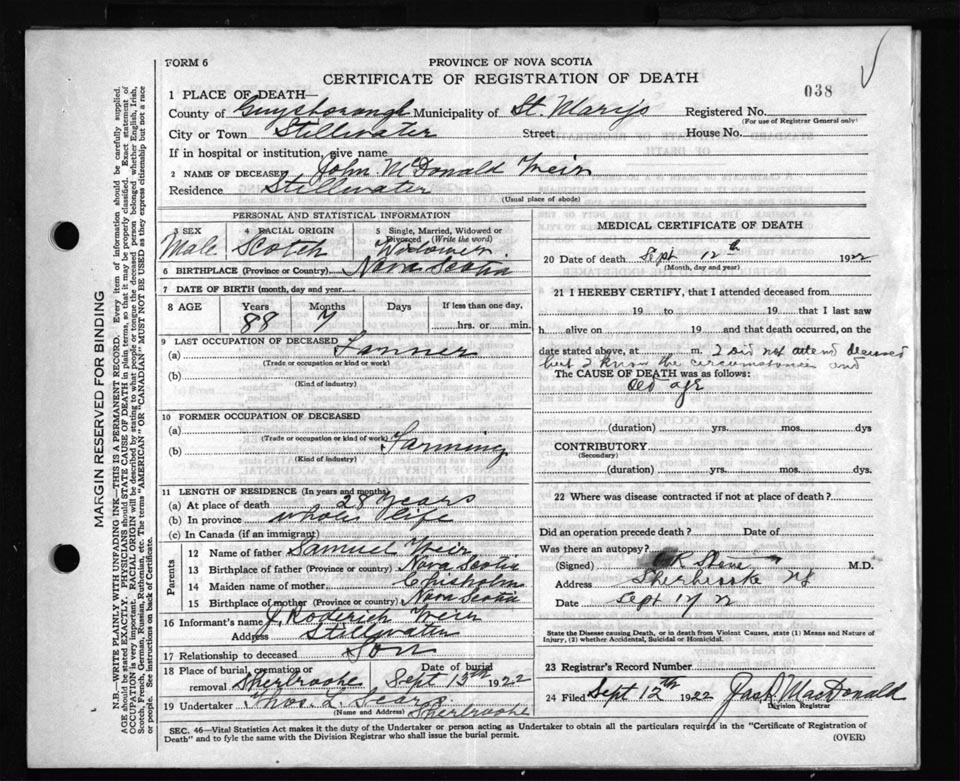 FORM 6
PROVINCE OF NOVA SCOTIA
CERTIFICATE OF REGISTRATION OF DEATH
038
1 PLACE OF DEATH—
County of Guysborough Municipality of St. Mary's Registered No.
(For use of Registrar General only)
City or Town Stillwater Street House No.
If in hospital or institution, give name
2 NAME OF DECEASED John McDonald Weir
Residence Stillwater
(Usual place of abode)
PERSONAL AND STATISTICAL INFORMATION
3 SEX 4 RACIAL ORIGIN 5 Single, Married, Widowed or Divorced (Write the word)
Male Scotch Widower
6 BIRTHPLACE (Province or Country) Nova Scotia
7 DATE OF BIRTH (month, day and year)
8 AGE Years Months Days If less than one day,
88 7 hrs. or min.
9 LAST OCCUPATION OF DECEASED
(a) Farmer
(Trade or occupation or kind of work)
(b)
(Kind of industry)
10 FORMER OCCUPATION OF DECEASED
(a)
(Trade or occupation or kind of work)
(b) Farming
(Kind of industry)
11 LENGTH OF RESIDENCE (In years and months)
(a) At place of death 28 years
(b) In province whole life
(c) In Canada (if an immigrant)
Parents
12 Name of father Samuel Weir
13 Birthplace of father (Province or country) Nova Scotia
14 Maiden name of mother Chisholm
15 Birthplace of mother (Province or Country) Nova Scotia
16 Informant's name J. Roderick Weir
Address Stillwater
17 Relationship to deceased Son
18 Place of burial, cremation or removal Sherbrooke Date of burial Sept 13th 1922
19 Undertaker Thos. L. Sears Sherbrooke
(Name and Address)
MEDICAL CERTIFICATE OF DEATH
20 Date of death Sept 12th 1922
(Month, day and year)
21 I HEREBY CERTIFY, that I attended deceased from
19 to 19 that I last saw
h alive on 19 and that death occurred, on the
date stated above, at m. I did not attend deceased
but I know the circumstances and
The CAUSE OF DEATH was as follows:
old age
(duration) yrs. mos. dys
CONTRIBUTORY
(Secondary)
(duration) yrs. mos. dys.
22 Where was disease contracted if not at place of death?
Did an operation precede death? Date of
Was there an autopsy?
(Signed) M.D.
Address Sherbrooke NS
Date Sept 22
State the Disease causing Death, or in death from Violent Causes, state (1) Means and Nature of Injury, (2) whether Accidental, Suicidal or Homicidal.
23 Registrar's Record Number
24 Filed Sept 12th 1922 Jas. D. MacDonald
Division Registrar
SEC. 46—Vital Statistics Act makes it the duty of the Undertaker or person acting as Undertaker to obtain all the particulars required in the "Certificate of Registration of
Death" and to fyle the same with the Division Registrar who shall issue the burial permit.
(OVER)
MARGIN RESERVED FOR BINDING
N.B.—WRITE PLAINLY WITH UNFADING INK—THIS IS A PERMANENT RECORD. Every item of information should be carefully supplied.
AGE should be stated EXACTLY. PHYSICIANS should STATE CAUSE OF DEATH in plain terms, so that it may be properly classified. Exact statement of
OCCUPATION is very important. RACIAL ORIGIN will be described by stating to what people or tongue the deceased person belonged whether English, Irish,
Scotch, French, German, Russian, Ruthenian, etc. The terms "AMERICAN" OR "CANADIAN" MUST NOT BE USED as they express citizenship but not a race
or people. See instructions on back of Certificate.